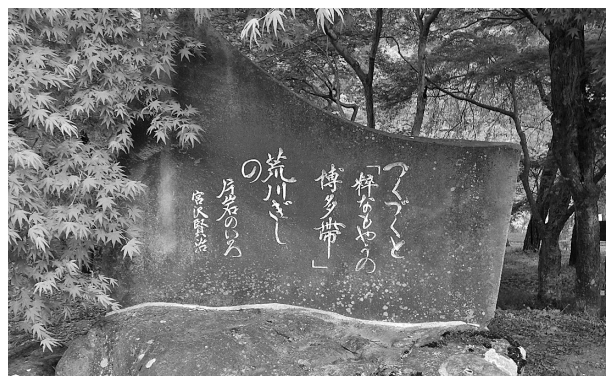 つくづくと
「粋なもやうの
博多帯」
荒川ぎし
の
片岩のいろ
宮沢賢治